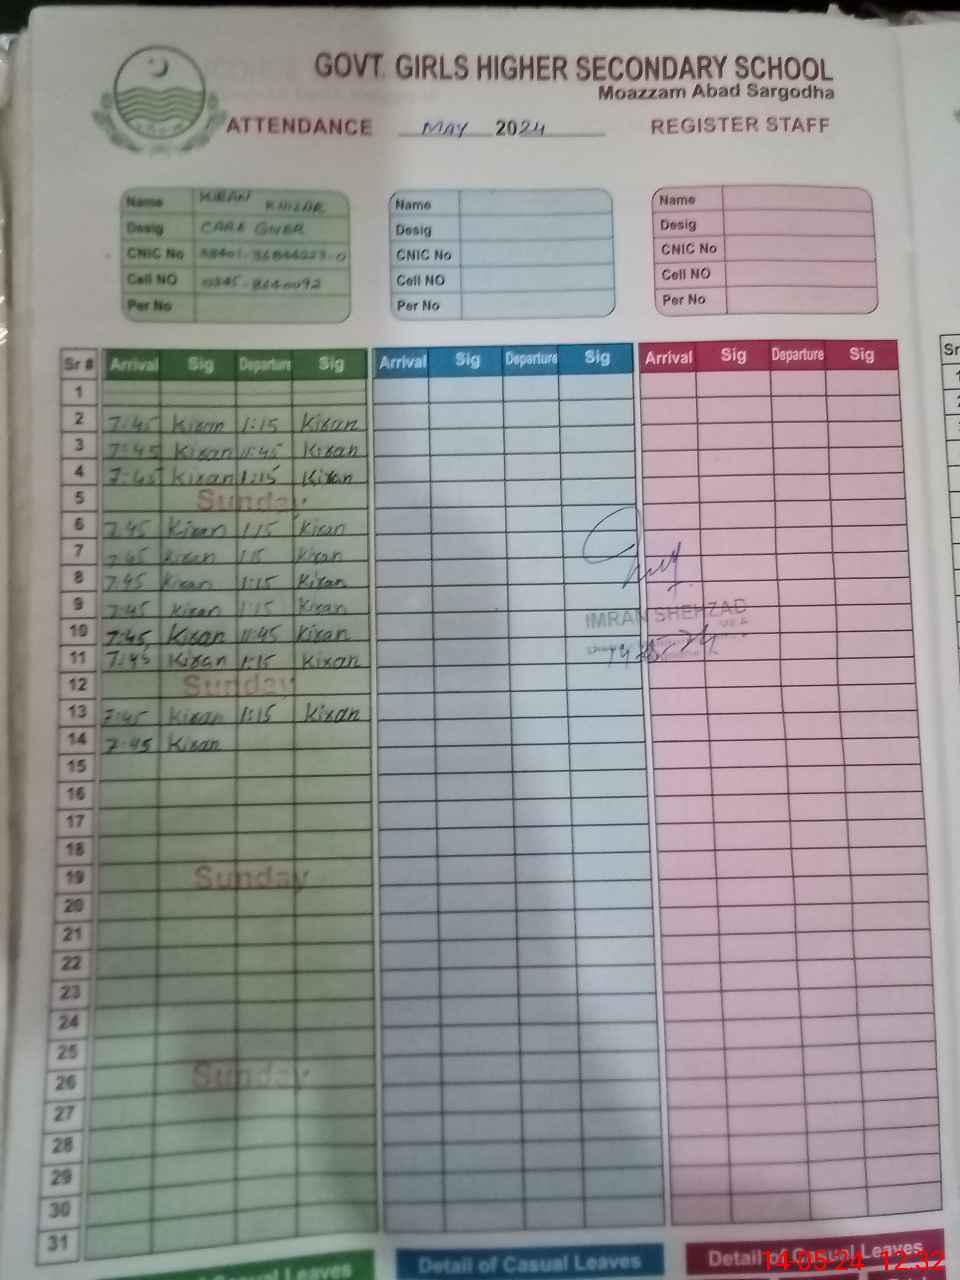 GOVT. GIRLS HIGHER SECONDARY SCHOOL
Moazzam Abad Sargodha
ATTENDANCE MAY 2024 REGISTER STAFF
Name KIRAN Name Name
Desig CARE GIVER Desig Desig
CNIC No CNIC No CNIC No
Cell NO Cell NO Cell NO
Per No Per No Per No
Sr # Arrival Sig Departure Sig Arrival Sig Departure Sig Arrival Sig Departure Sig Sr
1
2 7:45 Kiran 1:15 Kiran
3 7:45 Kiran 11:45 Kiran
4 7:45 Kiran 1:15 Kiran
5 Sunday
6 7:45 Kiran 1:15 Kiran
7 7:45 Kiran 1:15 Kiran
8 7:45 Kiran 1:15 Kiran
9 7:45 Kiran 1:15 Kiran
IMRAN SHEHZAD
10 7:45 Kiran 11:45 Kiran
11 7:45 Kiran 1:15 Kiran
12 Sunday
13 7:45 Kiran 1:15 Kiran
14 7:45 Kiran
15
16
17
18
19 Sunday
20
21
22
23
24
25
26 Sunday
27
28
29
30
31
Casual Leaves Detail of Casual Leaves Detail of Casual Leaves
14-05-24 12:32